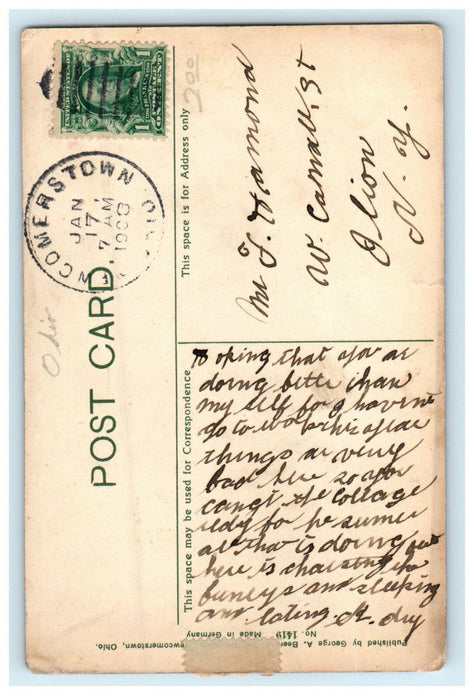 POST CARD.
NEWCOMERSTOWN, OHIO
JAN
17
7 AM
1908
1
1
200
Ohio
This space is for Address only
Mr L. Hamond
W. Canall, St
Ilion
N. Y.
This space may be used for Correspondence
Hoping that you ar
doing better than
my self for I havent
go to work his year
things ar very
bad here so you
cangt the Cottage
redy for he sumer
all that is doing
here is chaising the
buneys and sleeping
and eating.
Published by George A. Beer, Newcomerstown, Ohio.
No. 1419 Made in Germany